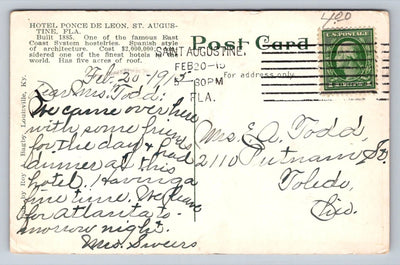 HOTEL PONCE DE LEON, ST. AUGUS-
TINE, FLA.
Built 1885. One of the famous East
Coast System hostelries. Spanish style
of architecture. Cost $2,000,000.
sidered one of the finest hotels
world. Has five acres of roof.
Post Card
420
SAINT AUGUSTINE
FEB 20
6 PM
FLA.
For address only
U.S. POSTAGE
Feb-20-1915
Dear Mrs. Todd:
We came over here
with some friends
for the day & had
dinner at this
hotel. Having a
fine time. We leave
for Atlanta to-
morrow night.
Mrs. Swiers
Mrs. E.A. Todd,
2110 Putnam St.
Toledo,
Ohio.
by Roy Bagby, Louisville, Ky.